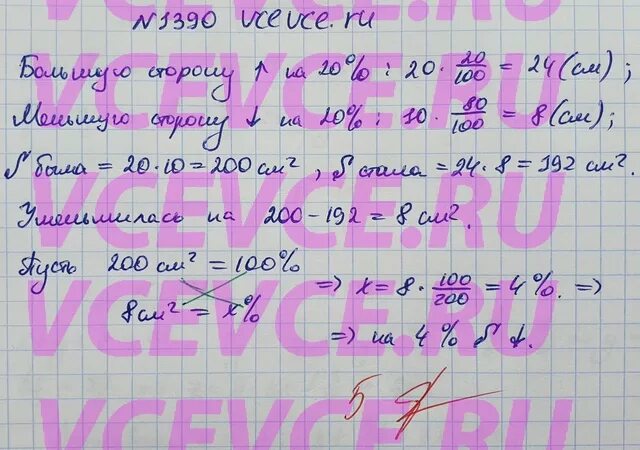 N1390 vcevce.ru
Большую сторону ↑ на 20% : 20 · 20/100 = 24 (см) ;
Меньшую сторону ↓ на 20% : 10 · 80/100 = 8 (см) ;
S была = 20 · 10 = 200 см² , S стала = 24 · 8 = 192 см².
Уменьшилась на 200 - 192 = 8 см².
Пусть 200 см² = 100%
8 см² = x%
=> x = 8 · 100/200 = 4%. =>
=> на 4% S ↓.
5
VCEVCE.RU
VCEVCE.RU
VCEVCE.RU
VCEVCE.RU